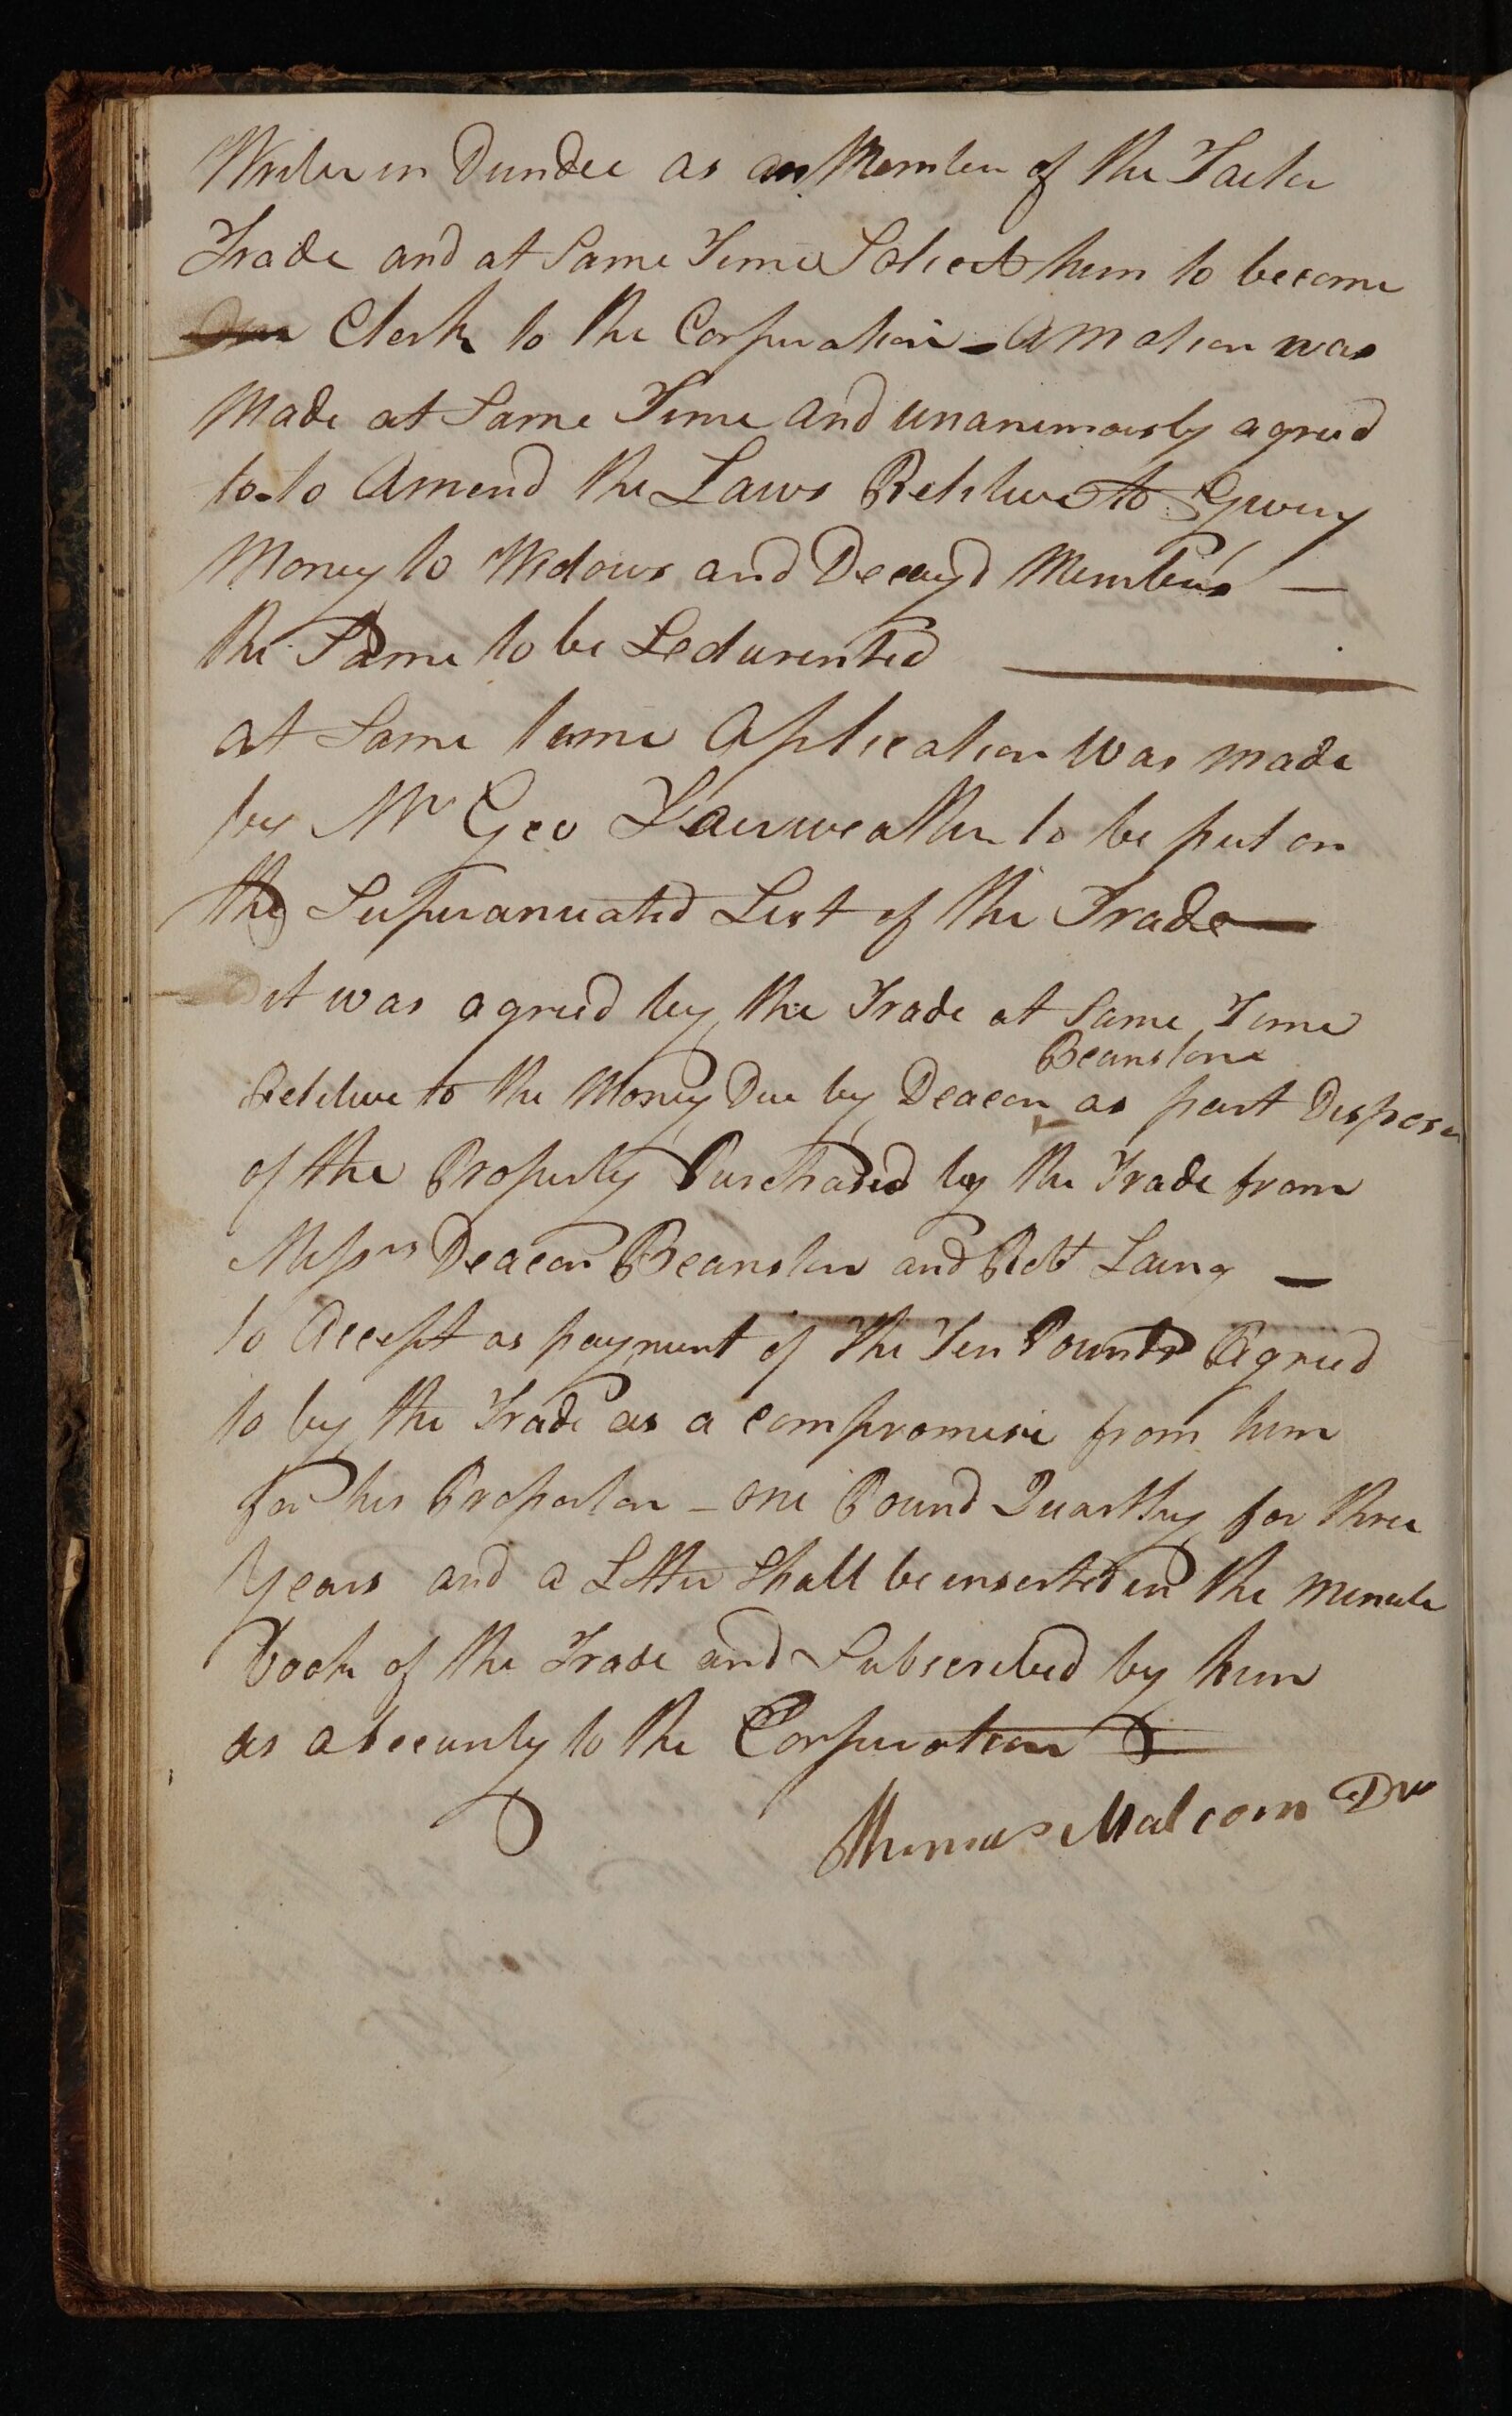 Writer in Dundee as an Member of the Tailor
Trade and at Same Time Solicit him to become
Clerk to the Corporation - A Motion was
Made at Same Time and unanimously agreed
to - to Amend the Laws Relitive to Giveing
Money to Widows and Decay'd Members —
the Same to be
at Same time Aplication was made
by Mr Geo Fairweather to be put on
the Superanuated List of the Trade —
it was agreed by the Trade at Same Time
Beanston
Relitive to the Money Due by Deacon as part
of the Property Purchased by the Trade from
Messrs Deacon Beanston and Robt Laing —
to Accept as payment of the Ten Pounds Agreed
to by the Trade as a compromise from him
for his Proportion - one Pound Quartly for three
Years and a Letter Shall be inserted in the minute
book of the Trade and Subscribed by him
as a Security to the Corporation
Thomas Malcom Dn